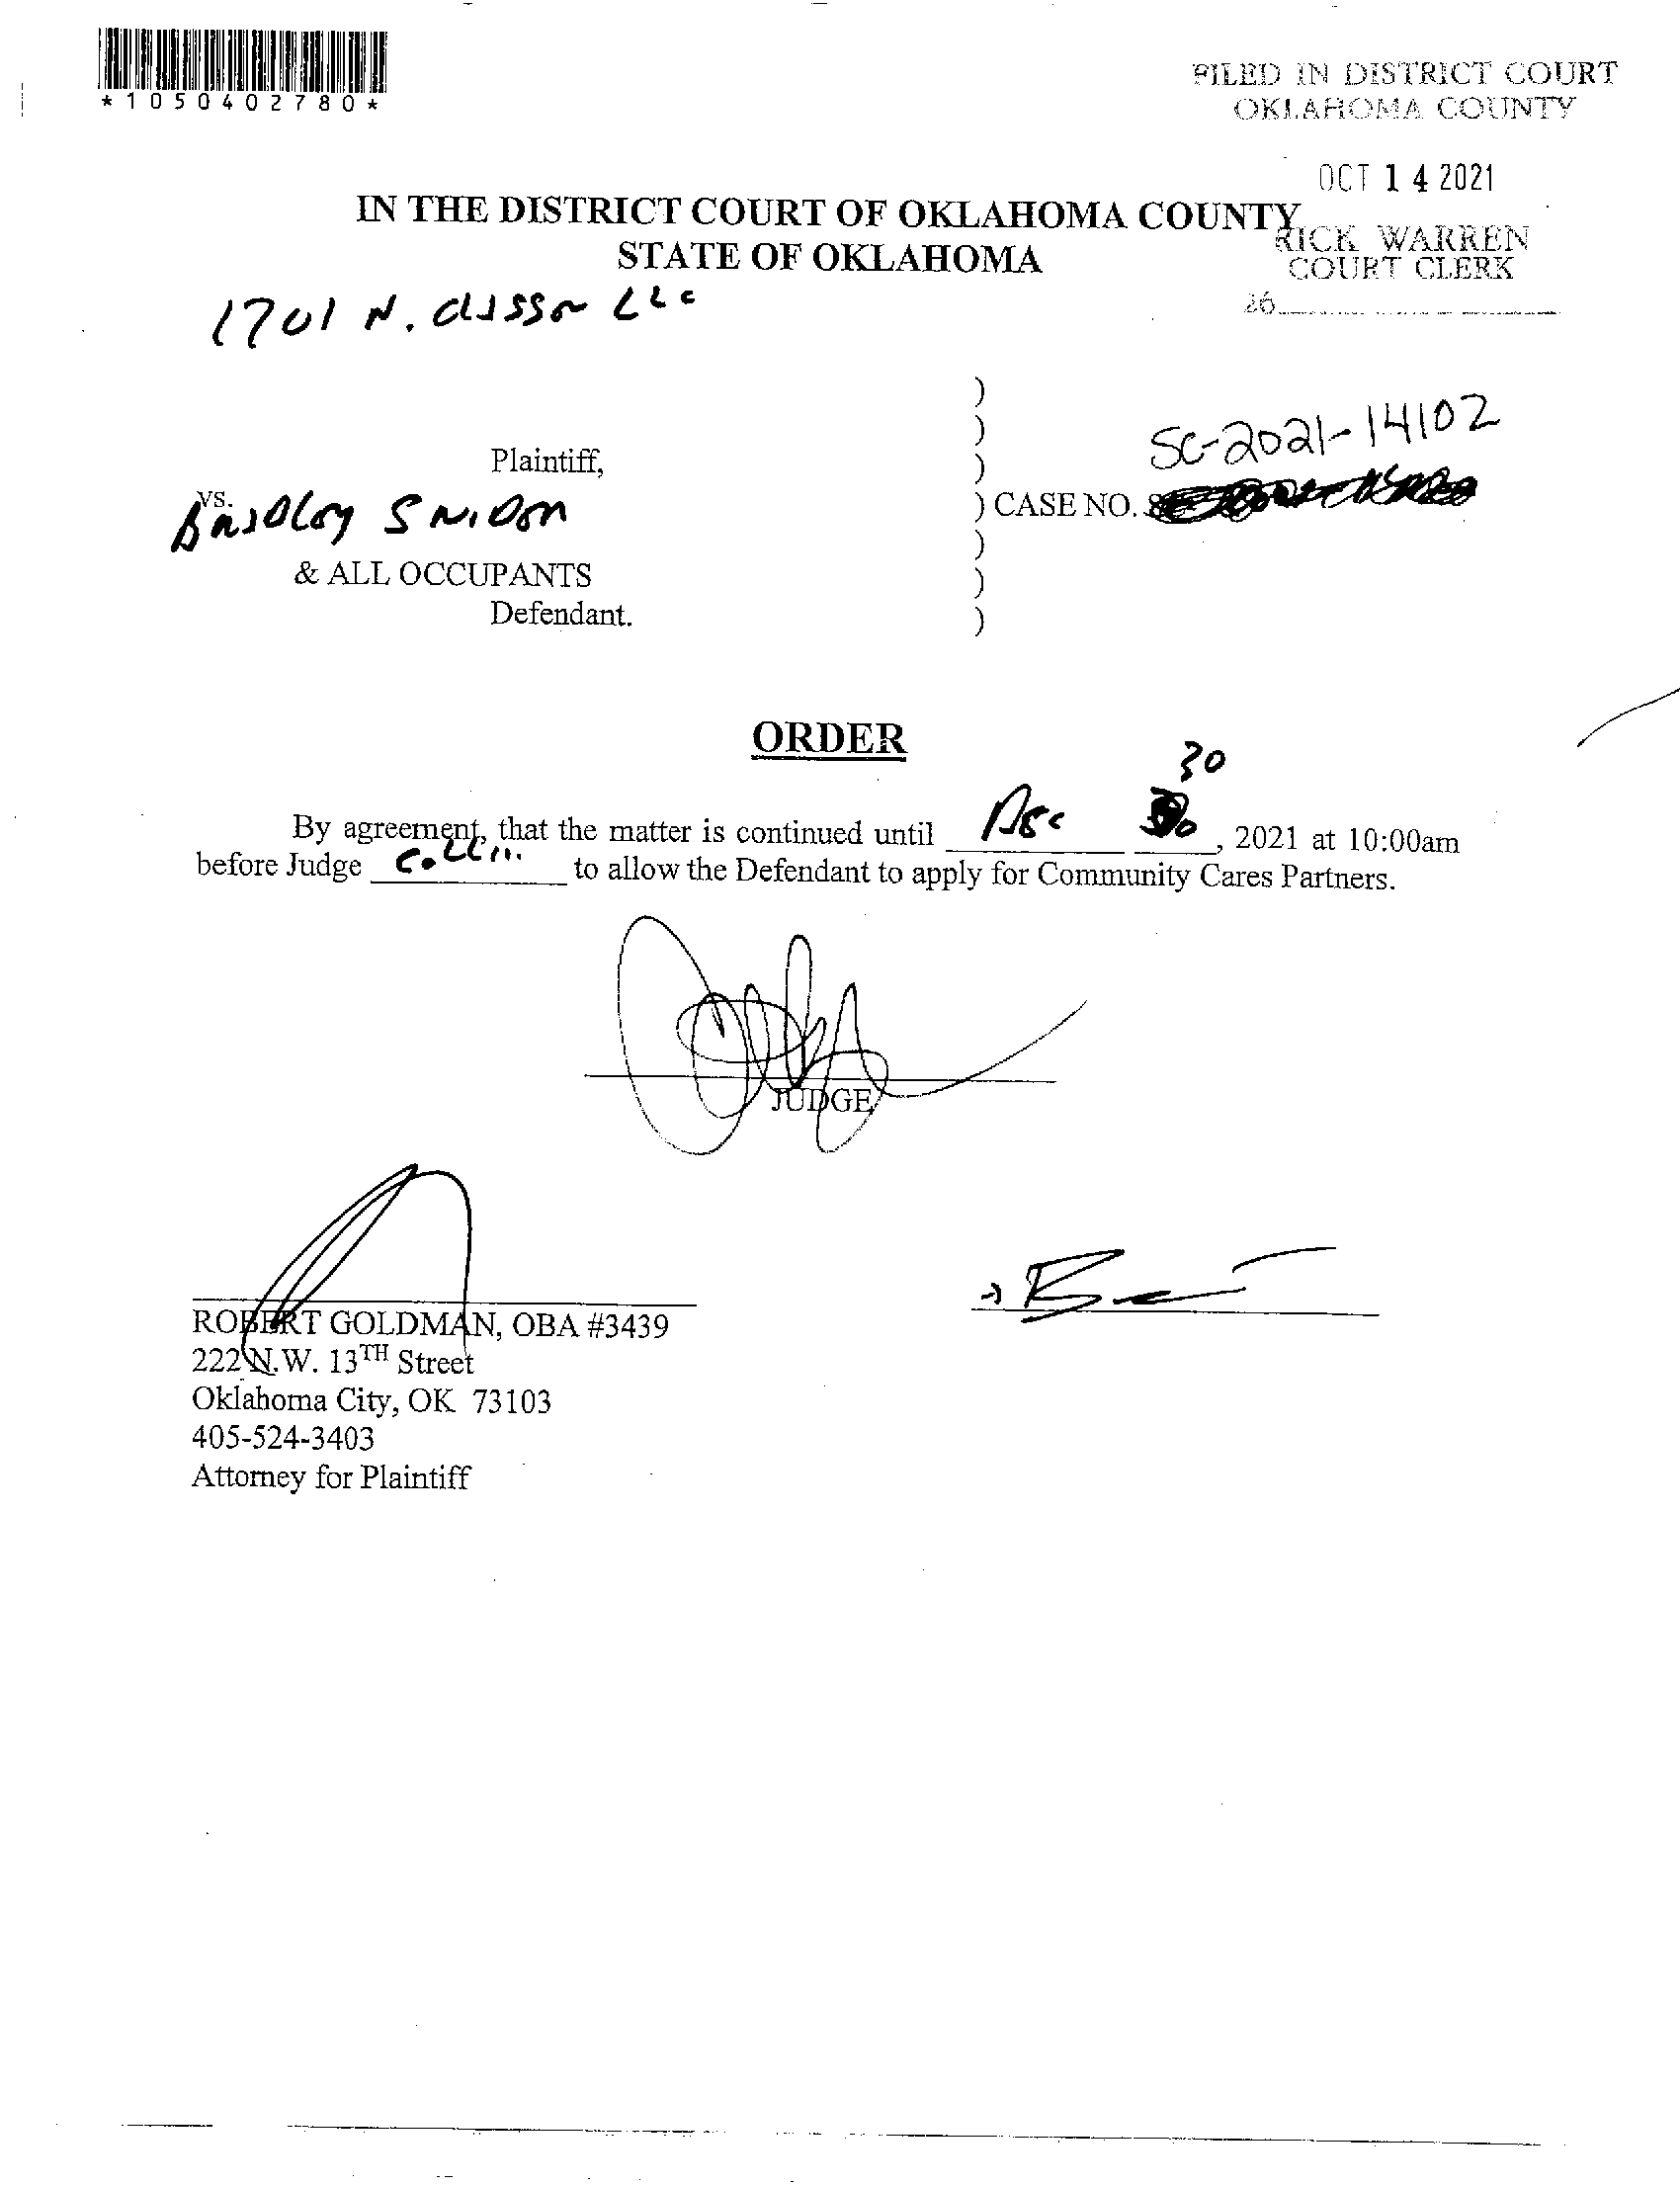 *1050402780*
FILED IN DISTRICT COURT
OKLAHOMA COUNTY
OCT 14 2021
IN THE DISTRICT COURT OF OKLAHOMA COUNTY
STATE OF OKLAHOMA
RICK WARREN
COURT CLERK
1701 N. Classen LLC
Plaintiff,
SC-2021-14102
vs.
) CASE NO.
Bradley Snider
& ALL OCCUPANTS
Defendant.
ORDER
30
By agreement, that the matter is continued until Dec , 2021 at 10:00am
before Judge Collin to allow the Defendant to apply for Community Cares Partners.
JUDGE
ROBERT GOLDMAN, OBA #3439
222 N.W. 13TH Street
Oklahoma City, OK 73103
405-524-3403
Attorney for Plaintiff